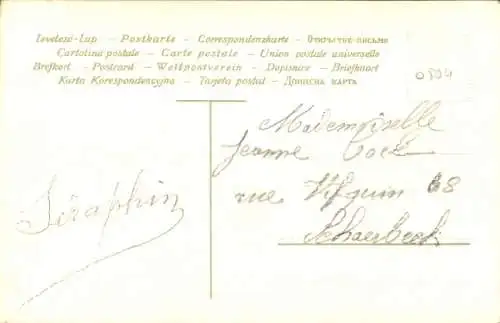 Levelező-Lap – Postkarte – Correspondenzkarte – Открытое письмо
Cartolina postale – Carte postale – Union postale universelle
Brefkort – Postcard – Weltpostverein – Dopisnice – Briefkaart
Karta Korespondencyjna – Tarjeta postal – Дописна карта
0594
Mademoiselle
Jeanne
rue 68
Schaerbeek
Séraphin